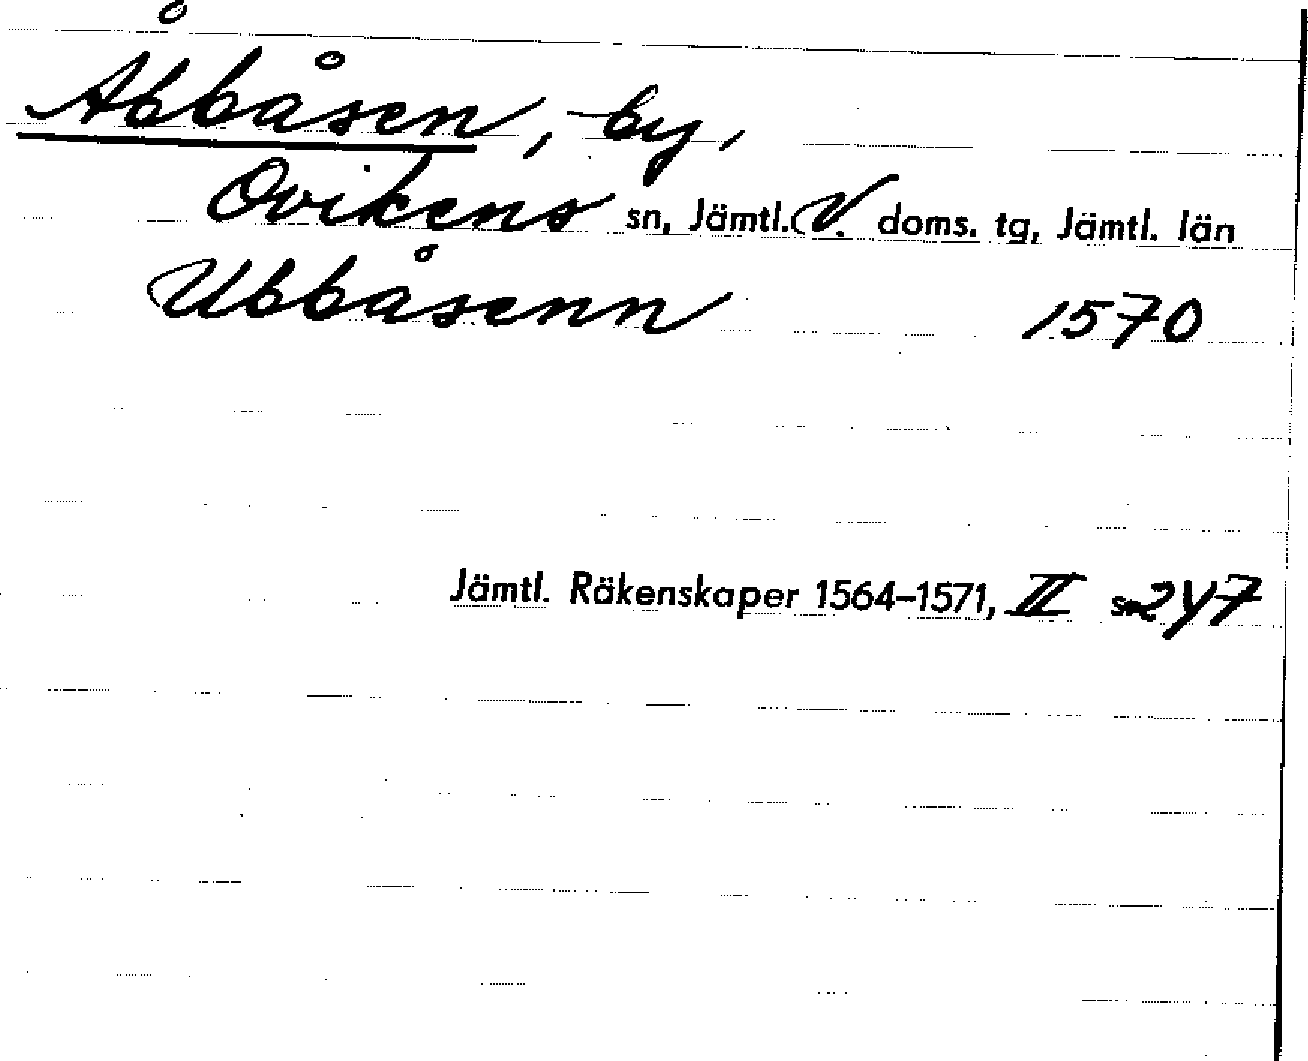 Åbbåsen, by,
Ovikens sn, Jämtl. V. doms. tg, Jämtl. län
Ubbåsenn 1570
Jämtl. Räkenskaper 1564–1571, II s. 247